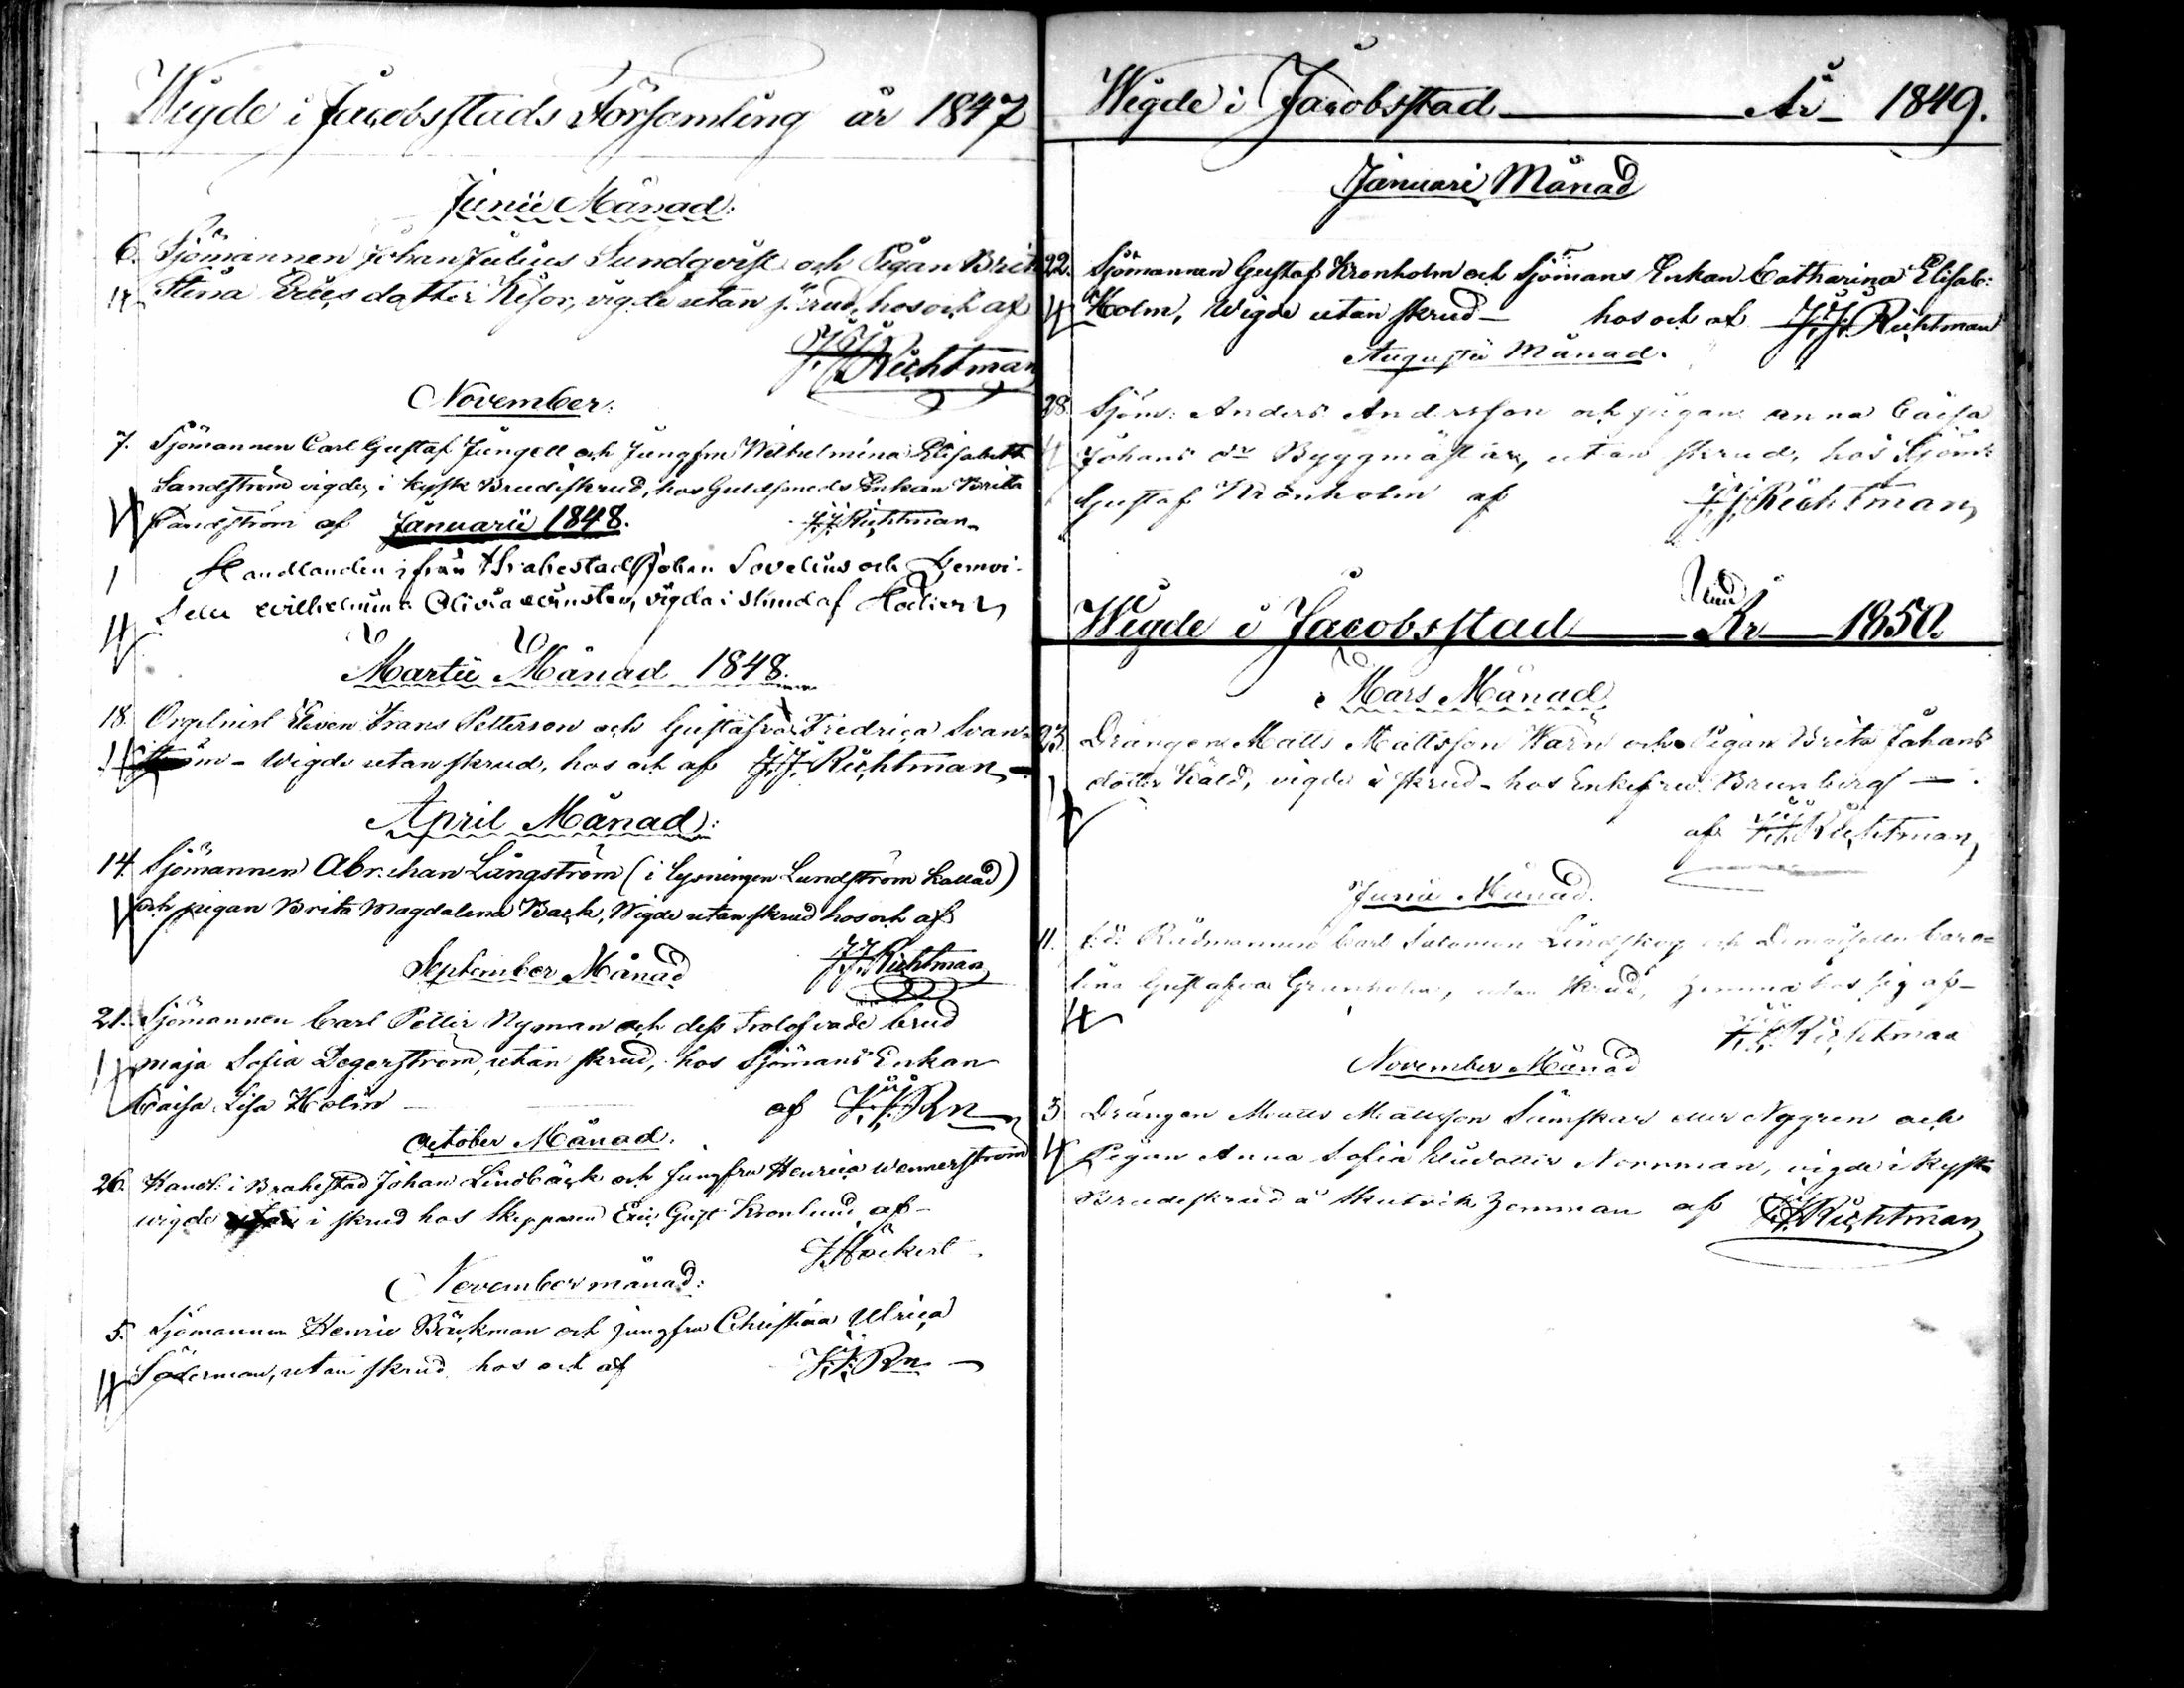 Wigde i Jacobsstads Församling år 1847
Junii Månad:
6. Sjömannen Johan Julius Sundqvist och Pigan Brita
Stina Ericsdatter Kisor, vigde utan skrud, hos och af
J. J. Richtman
November:
7. Sjömannen Carl Gustaf Jungell och Jungfrun Wilhelmina Elisabeth
Sandström vigde, i kysk Brudeskrud, hos Guldsmeds Enkan Brita
Sandström af Januarii 1848. J. J. Richtman
1 Handlanden ifrån Brahestad Johan Sovelius och Demoi-
selle Wilhelmina Olivia, vigda i skrud af
Martii Månad 1848.
18. Orgelnist Eleven Frans Petterson och Gustafva Fredrica Svan-
ström - Wigde utan skrud, hos och af J. J. Richtman
April Månad:
14. Sjömannen Abraham Långström (i Lysningen Lundström kallad)
och pigan Brita Magdalena Back, Wigde utan skrud hos och af
September Månad J. J. Richtman
21. Sjömannen Carl Petter Nyman och dess Trolofvade brud
Maja Sofia Degerström, utan skrud, hos Sjömans Enkan
Caisa Lisa Holm af J. J. Rn
October Månad.
26. Handl: i Brahestad Johan Lindbäck och Jungfru Henrica Wennerström
wigde i skrud hos Skepparen Eric Gust Kronlund af
J. Höckert
November månad:
5. Sjömannen Henric Bäckman och jungfru Christina Ulrica
Söderman, utan skrud hos och af J. J. Rn
Wigde i Jacobsstad År 1849.
Januari Månad
22. Sjömannen Gustaf Kronholm och Sjömans Enkan Catharina Elisab:
Holm, Wigde utan skrud - hos och af J. J. Richtman
Augusti Månad.
28. Sjöm: Anders Andersson och pigan Anna Caisa
Johans dr Byggmästar, utan skrud, hos Sjöm:
Gustaf Kronholm af J. J. Richtman
Wigde i Jacobsstad År 1850.
Mars Månad
23. Drängen Matts Mattsson Warn och Pigan Brita Johans
dotter Kald, vigde i skrud - hos Enkefru Braunberg
af J. J. Richtman
Junii Månad.
11. f.d. Rådmannen Carl Salomon Lindskog och Demoiselle Caro-
lina Gustafva Grönholm, utan skrud, hemma hos sig af
J. J. Richtman
November Månad
3. Drängen Matts Mattsson Sämskar eller Nygren och
Pigan Anna Sofia Norrman, vigde i kysk
Brudeskrud å hemman af J. J. Richtman